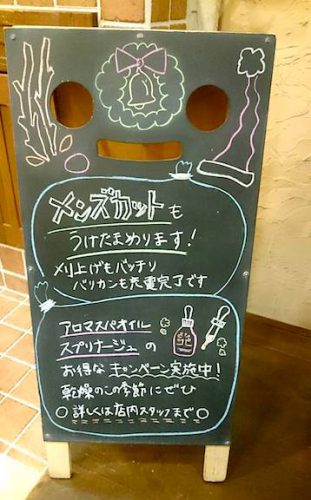 メンズカットも
うけたまわります!
刈り上げもバッチリ
バリカンも充電完了です
アロマスパオイル
スプリナージュの
お得なキャンペーン実施中!
乾燥のこの季節にぜひ
○詳しくは店内スタッフまで○